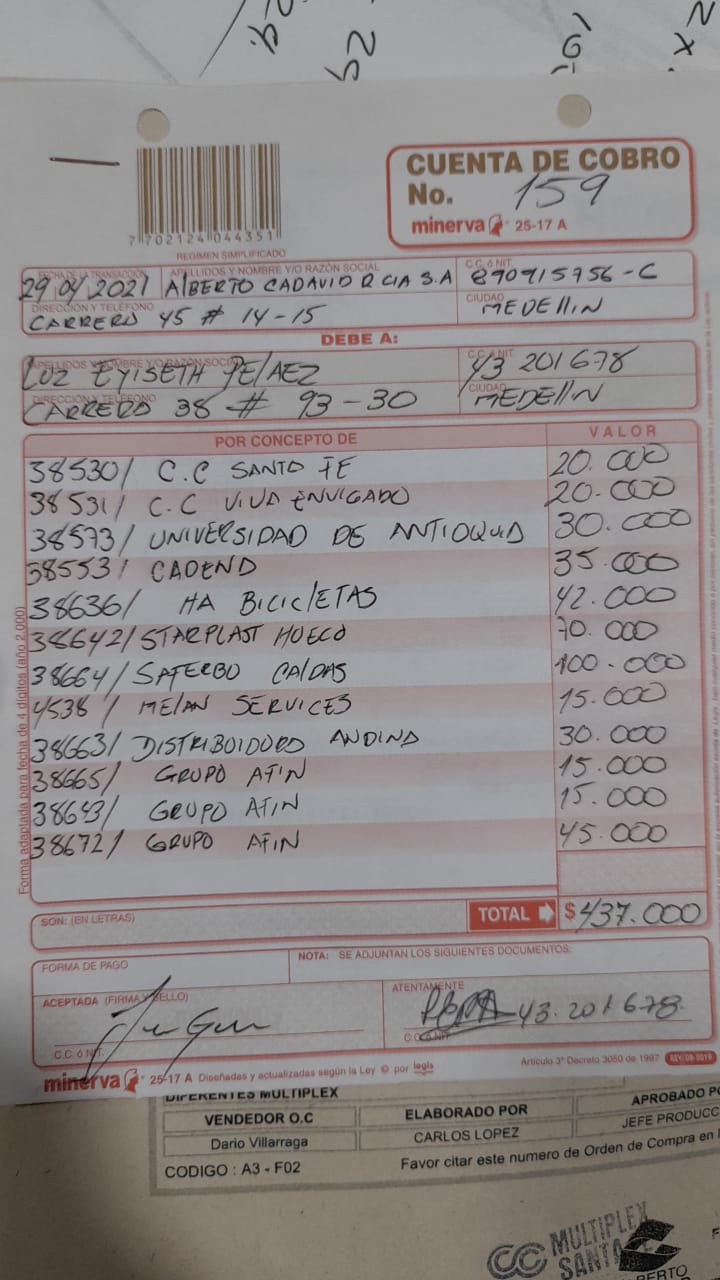 CUENTA DE COBRO
No. 159
minerva 25-17 A
7 702124 044351
REGIMEN SIMPLIFICADO
FECHA DE LA TRANSACCIÓN APELLIDOS Y NOMBRE Y/O RAZÓN SOCIAL C.C. ó NIT.
29 04 2021 AlBERTO CADAVID R CIA S.A 890915756-C
DIRECCIÓN Y TELÉFONO CIUDAD
CARRERA 45 # 14-15 MEDEllIN
DEBE A:
APELLIDOS Y NOMBRE Y/O RAZÓN SOCIAL C.C. ó NIT.
LUZ EYISETH PElAEZ 43 201678
DIRECCIÓN Y TELÉFONO CIUDAD
CARRERA 38 # 93-30 MEDEllIN
POR CONCEPTO DE VALOR
38530/ C.C SANTA FE 20.000
38531/ C.C VIVA ENVIGADO 20.000
38573/ UNIVERSIDAD DE ANTIOQUIA 30.000
38553/ CADENA 35.000
38636/ HA BICIClETAS 42.000
38642/ STARPLAST HUECO 70.000
38664/ SAFERBO CAlDAS 100.000
4538/ MElAN SERVICES 15.000
38663/ DISTRIBUIDORA ANDINA 30.000
38665/ GRUPO AFIN 15.000
38643/ GRUPO AFIN 15.000
38672/ GRUPO AFIN 45.000
SON: (EN LETRAS) TOTAL $437.000
FORMA DE PAGO NOTA: SE ADJUNTAN LOS SIGUIENTES DOCUMENTOS:
ACEPTADA (FIRMA Y SELLO) ATENTAMENTE
43.201678
C.C. ó NIT. C.C. ó NIT.
minerva 25-17 A Diseñadas y actualizadas según la Ley © por legis Artículo 3° Decreto 3050 de 1997 REV. 08-2019
Forma adaptada para fecha de 4 dígitos (año 2.000)
DIFERENTES MULTIPLEX
VENDEDOR O.C ELABORADO POR APROBADO PO
Dario Villarraga CARLOS LOPEZ JEFE PRODUCC
CODIGO : A3 - F02 Favor citar este numero de Orden de Compra en
MULTIPLEX
SANTA
BERTO